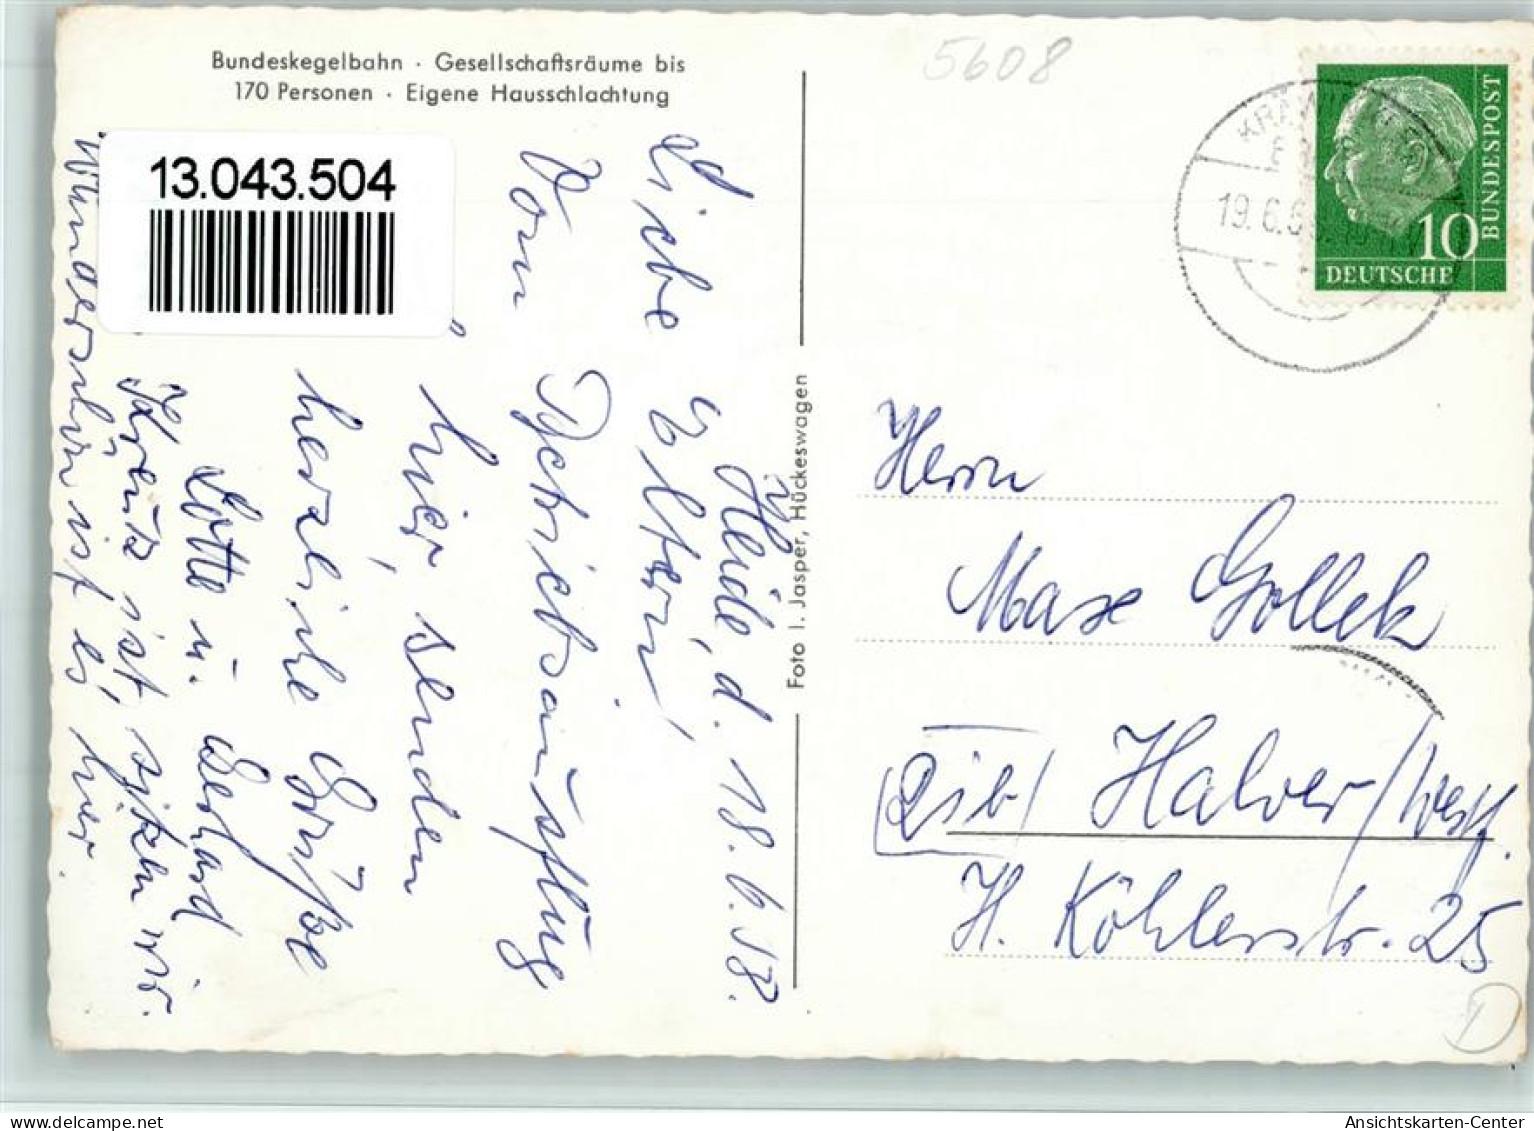 Bundeskegelbahn · Gesellschaftsräume bis
170 Personen · Eigene Hausschlachtung
13.043.504
5608
19.6.5
10
DEUTSCHE
BUNDESPOST
Heide, d. 18.6.58.
Liebe Eltern,
Vom Betriebsausflug
hier, senden
herzliche Grüße
Lotte u. Gerhard
ist, sitzen wir.
Wunderschön ist es hier.
Foto I. Jasper, Hückeswagen
Herrn
Max Gollek
Halver/Westf.
H. Köhlerstr. 25
D
Ansichtskarten-Center
www.delcampe.net